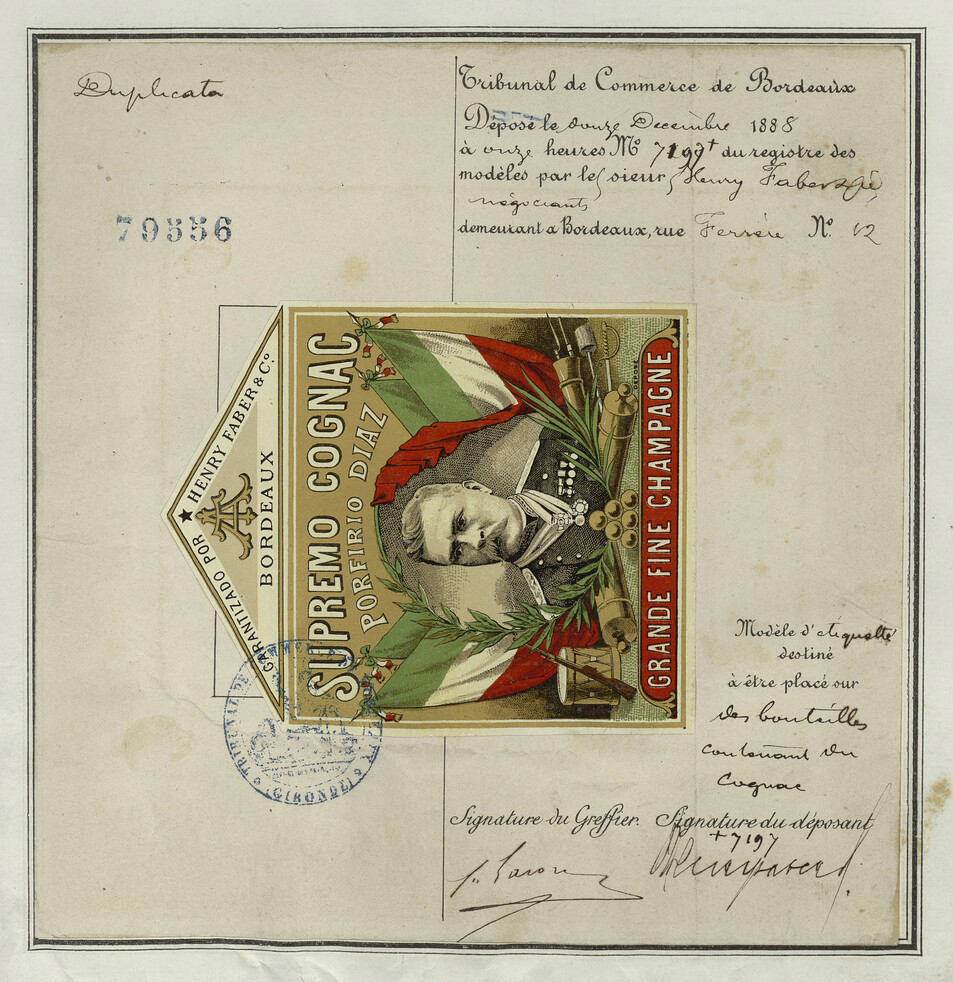 Duplicata
79556
Tribunal de Commerce de Bordeaux
Déposé le douze Decembre 1888
à onze heures Nº 7197+ du registre des
modèles par le sieur Henry Faber & Cie
négociants
demeurant a Bordeaux, rue Ferrère Nº 12
GARANTIZADO POR ★ HENRY FABER & Cº.
BORDEAUX
SUPREMO COGNAC
PORFIRIO DIAZ
DÉPOSÉ
GRANDE FINE CHAMPAGNE
TRIBUNAL DE COMMERCE DE
(GIRONDE)
Modèle d'etiquette
destiné
à être placé sur
des bouteilles
contenant du
Cognac
Signature du Greffier. Signature du déposant
+ 7197